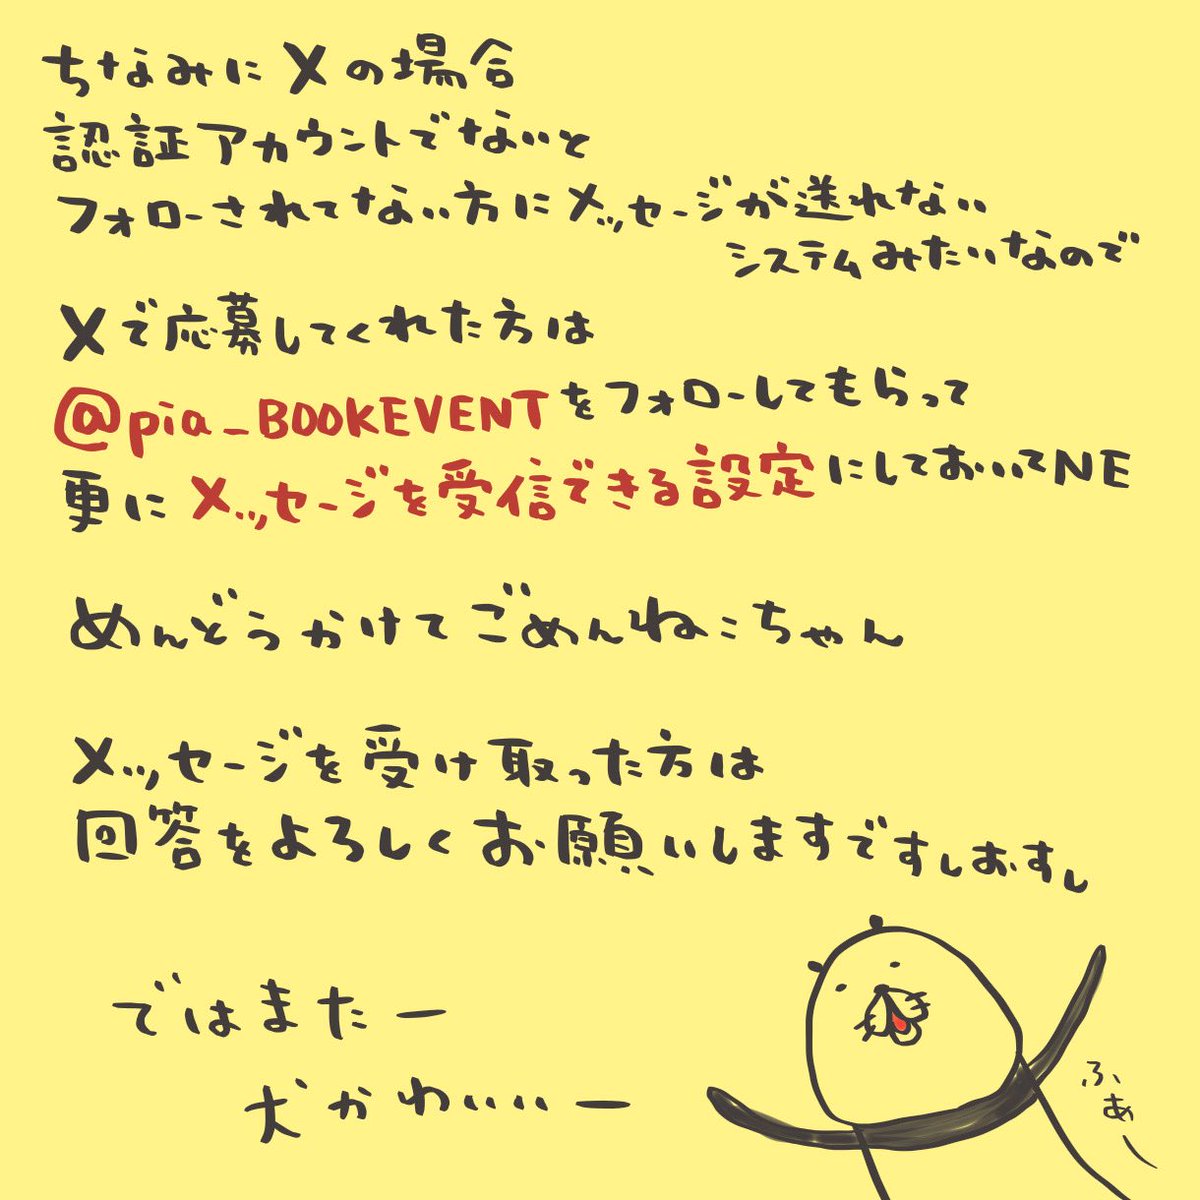 ちなみにXの場合
認証アカウントでないと
フォローされてない方にメッセージが送れない
システムみたいなので
Xで応募してくれた方は
@pia_BOOKEVENTをフォローしてもらって
更にメッセージを受信できる設定にしておいてNE
めんどうかけてごめんねこちゃん
メッセージを受け取った方は
回答をよろしくお願いしますですしおすし
ではまたー
犬かわいいー
ふぁー